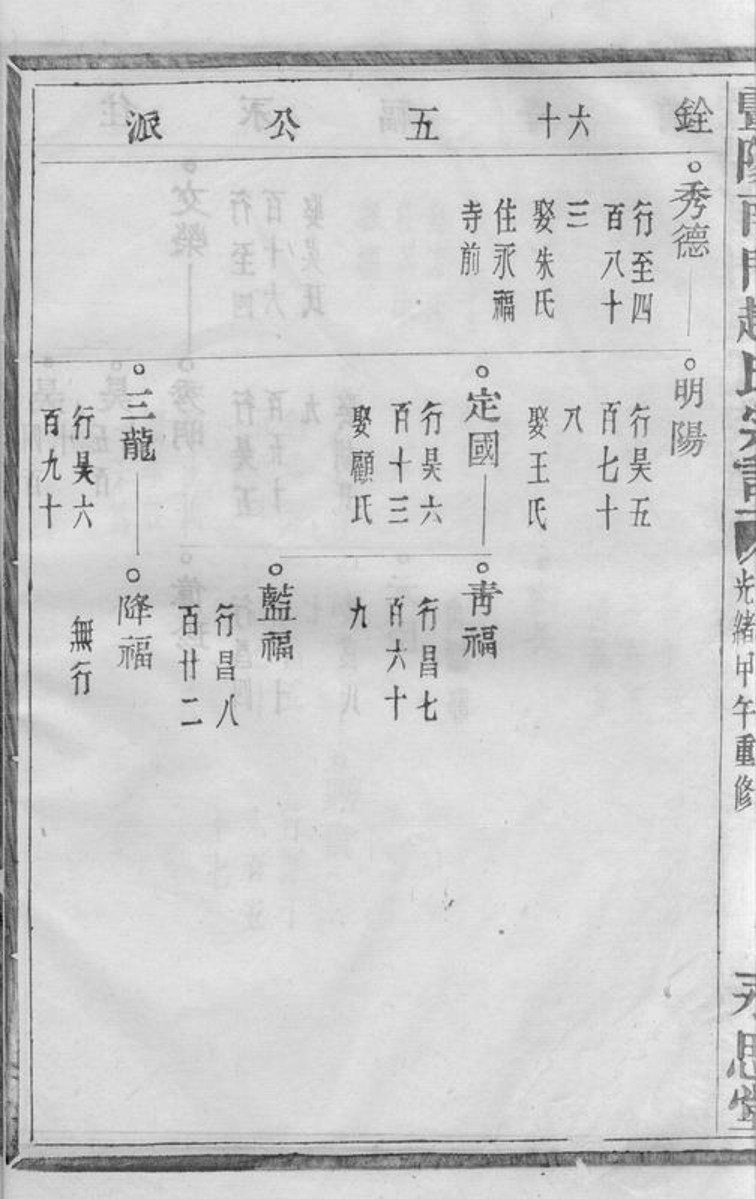 暨陽南門趙氏宗譜
光緒甲午重修
永思堂
銓六十五公派
秀德
行至四
百八十
三
娶朱氏
住永福
寺前
明陽
行昊五
百七十
八
娶王氏
定國
行昊六
百十三
娶顧氏
三龍
行昊六
百九十
青福
行昌七
百六十
九
藍福
行昌八
百廿二
降福
無行